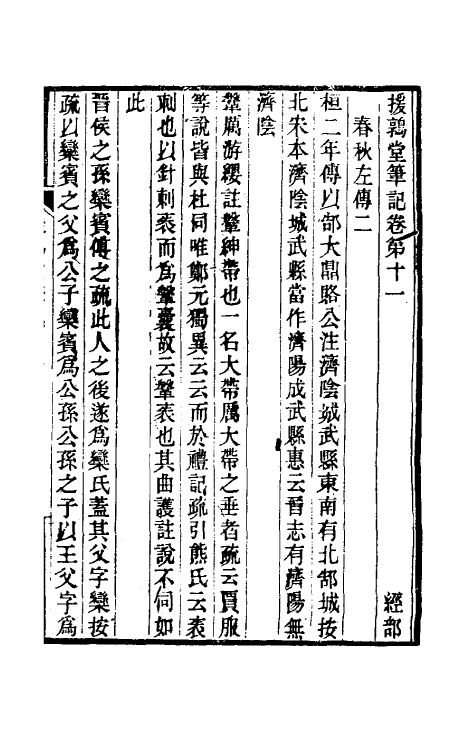 援鶉堂筆記卷第十一 經部
春秋左傳二
桓二年傳以郜大鼎賂公注濟陰城武縣東南有北郜城按
北宋本濟陰城武縣當作濟陽成武縣惠云晉志有濟陽無
濟陰
鞶厲游纓註鞶紳帶也一名大帶厲大帶之垂者疏云賈服
等說皆與杜同唯鄭元獨異云云而於禮記疏引熊氏云裘
刺也以針刺裘而爲鞶囊故云鞶裘也其曲護註說不同如
此
晉侯之孫欒賓傅之疏此人之後遂爲欒氏蓋其父字欒按
疏以欒賓之父爲公子欒賓爲公孫公孫之子以王父字爲